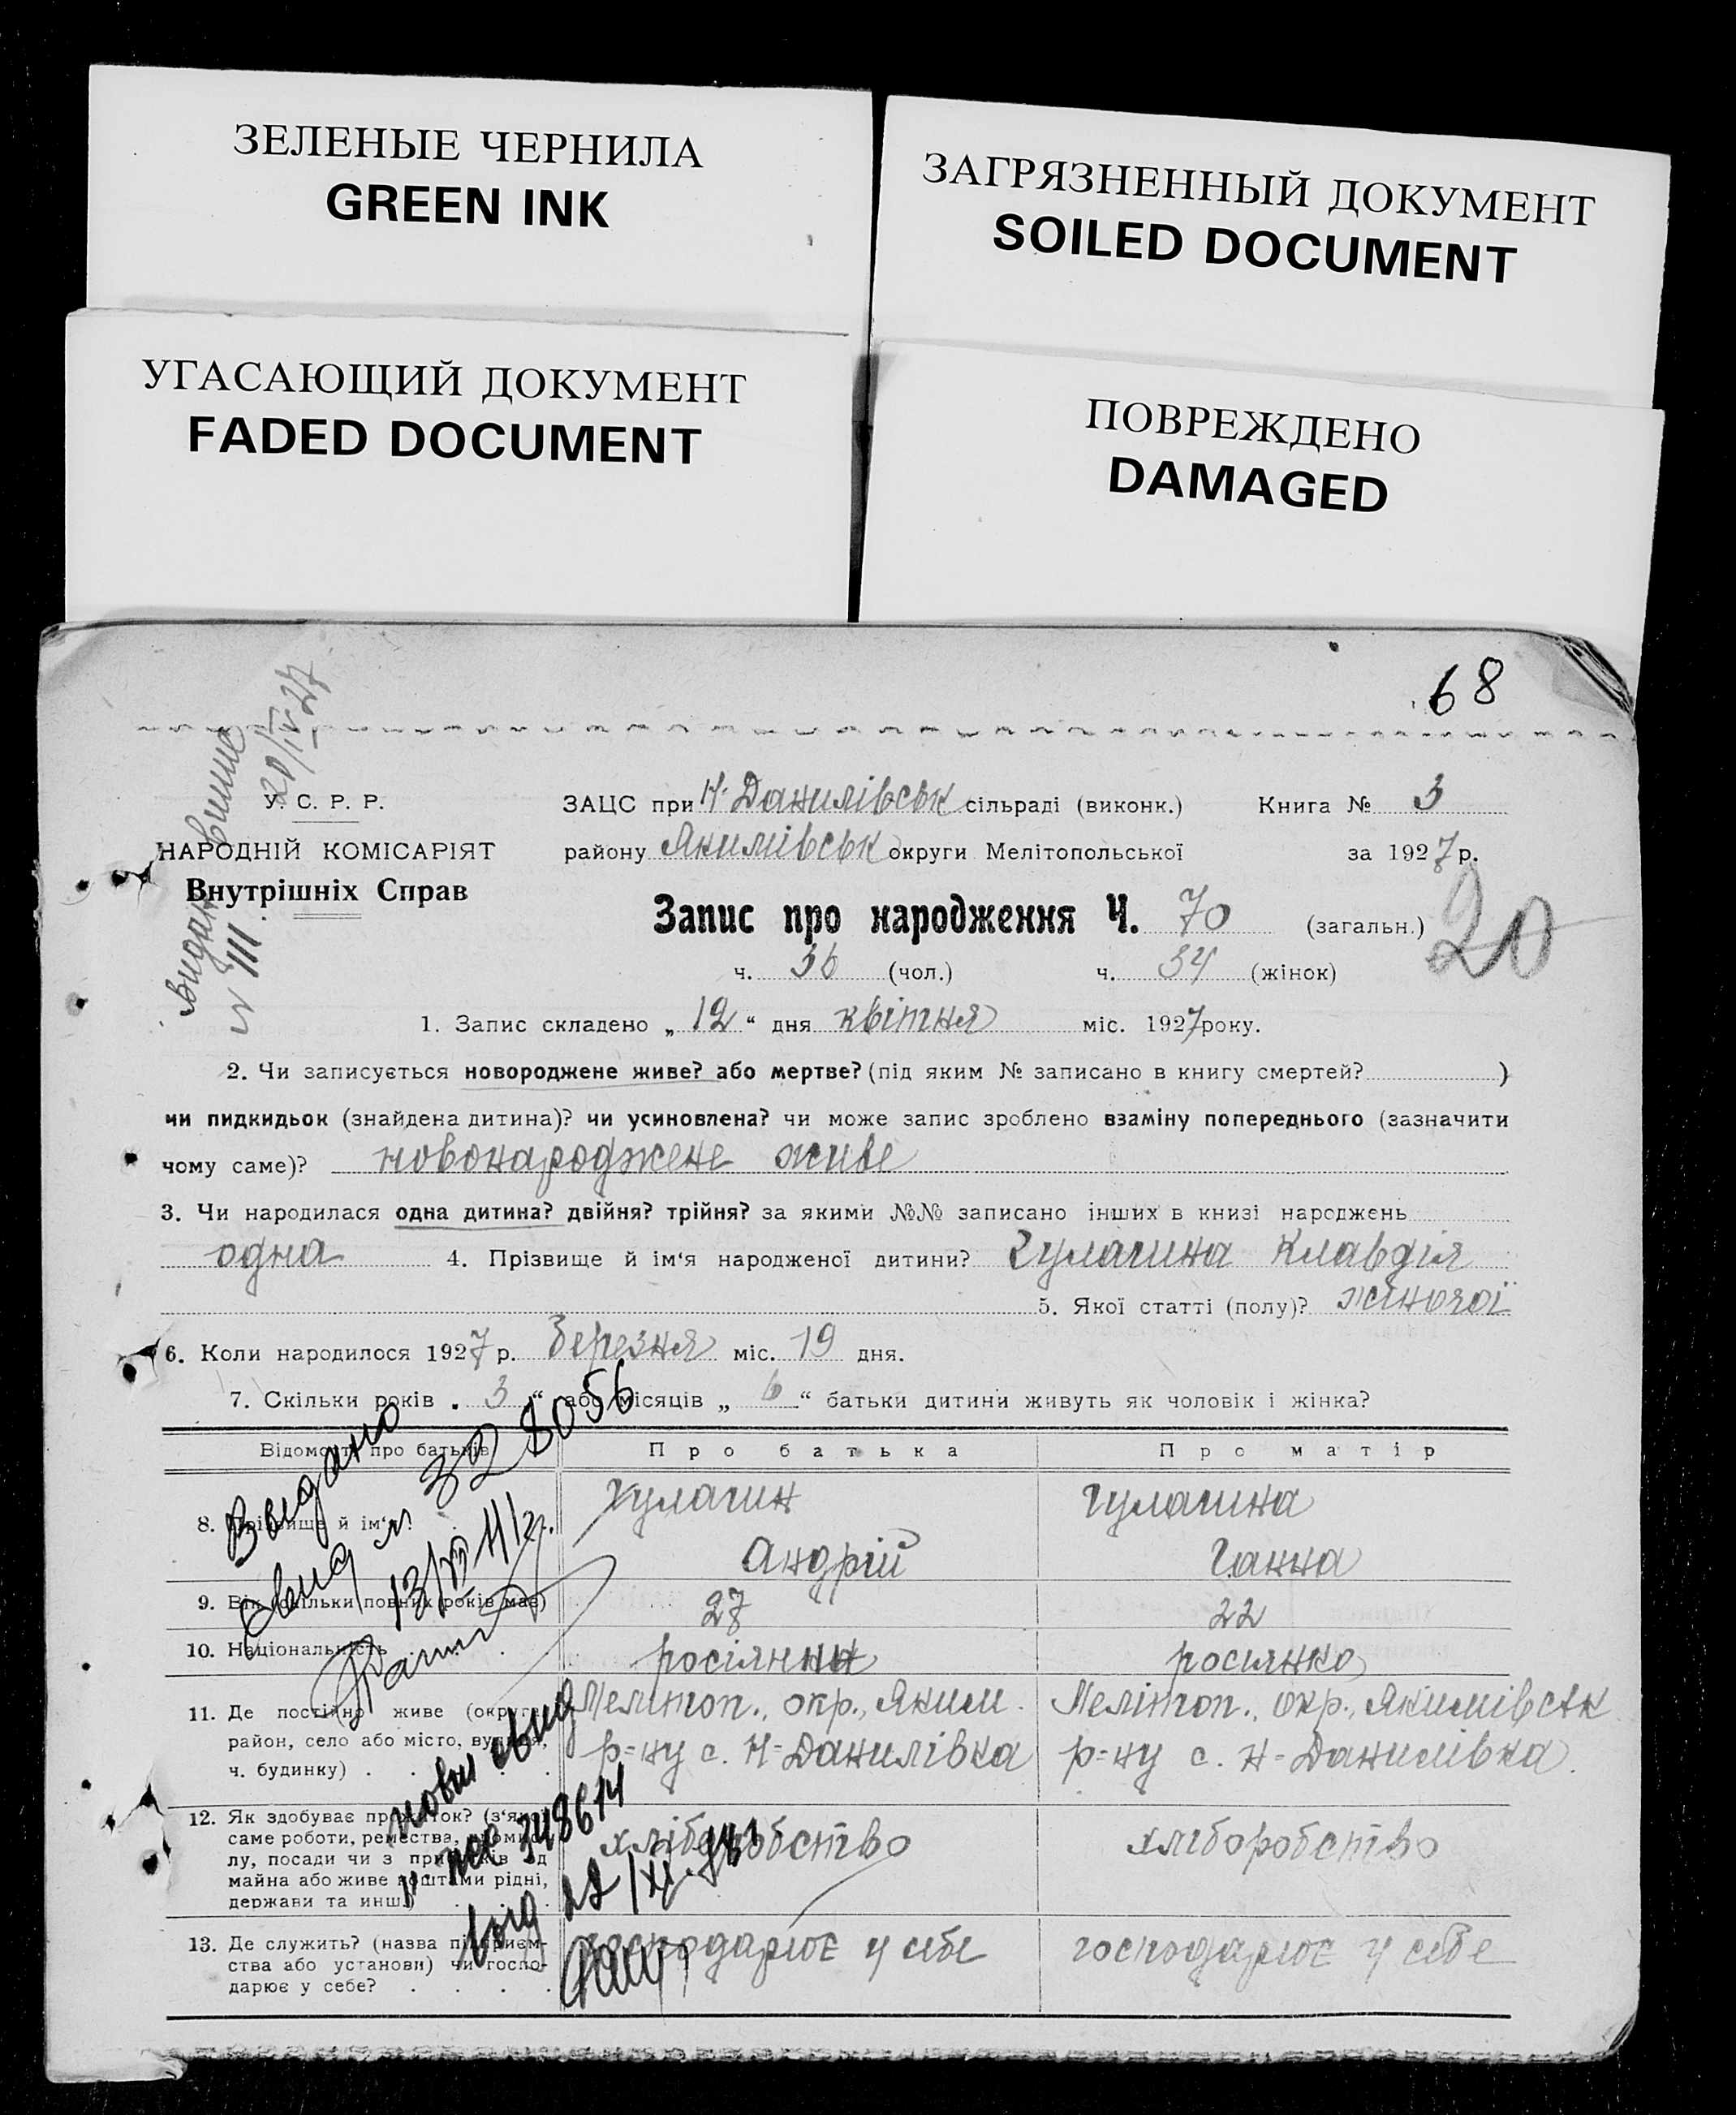 ЗЕЛЕНЫЕ ЧЕРНИЛА
GREEN INK
ЗАГРЯЗНЕННЫЙ ДОКУМЕНТ
SOILED DOCUMENT
УГАСАЮЩИЙ ДОКУМЕНТ
FADED DOCUMENT
ПОВРЕЖДЕНО
DAMAGED
68
20/IV-27
У. С. Р. Р.
НАРОДНІЙ КОМІСАРІЯТ
Внутрішніх Справ
ЗАЦС при Н-Данилівськ сільраді (виконк.) Книга № 3
району Якимівськ округи Мелітопольської за 1927 р.
Запис про народження Ч. 70 (загальн.)
20
ч. 36 (чол.) ч. 34 (жінок)
1. Запис складено „ 12 “ дня квітня міс. 1927 року.
2. Чи записується новороджене живе? або мертве? (під яким № записано в книгу смертей? )
чи пидкидьок (знайдена дитина)? чи усиновлена? чи може запис зроблено взаміну попереднього (зазначити
чому саме)? новонароджене живе
3. Чи народилася одна дитина? двійня? трійня? за якими №№ записано інших в книзі народжень
одна 4. Прізвище й ім‘я народженої дитини? Гулагина Клавдія
5. Якої статті (полу)? жіночої
6. Коли народилося 1927 р. Березня міс. 19 дня.
7. Скільки років „ 3 “ або місяців „ 6 “ батьки дитини живуть як чоловік і жінка?
Відомости про батьків Про батька Про матір
8. Прізвище й ім‘я? Гулагин Гулагина
Андрій Ганна
9. Вік (скільки повних років має) 27 22
10. Національність росіянин росіянка
11. Де постійно живе (округа, Мелітоп., окр., Яким. Мелітоп., окр., Якимівськ
район, село або місто, вулиця, р=ну с. Н=Данилівка р=ну с. Н=Данилівка
ч. будинку)
12. Як здобуває прожиток? (з‘якої
саме роботи, ремества, промис-
лу, посади чи з прибутків од хліборобство хліборобство
майна або живе коштами рідні,
держави та инш.)
13. Де служить? (назва підприєм- господарює у себе господарює у себе
ства або установи) чи госпо-
дарює у себе?
Видано
свид № 328056
новы свид
№ 348614